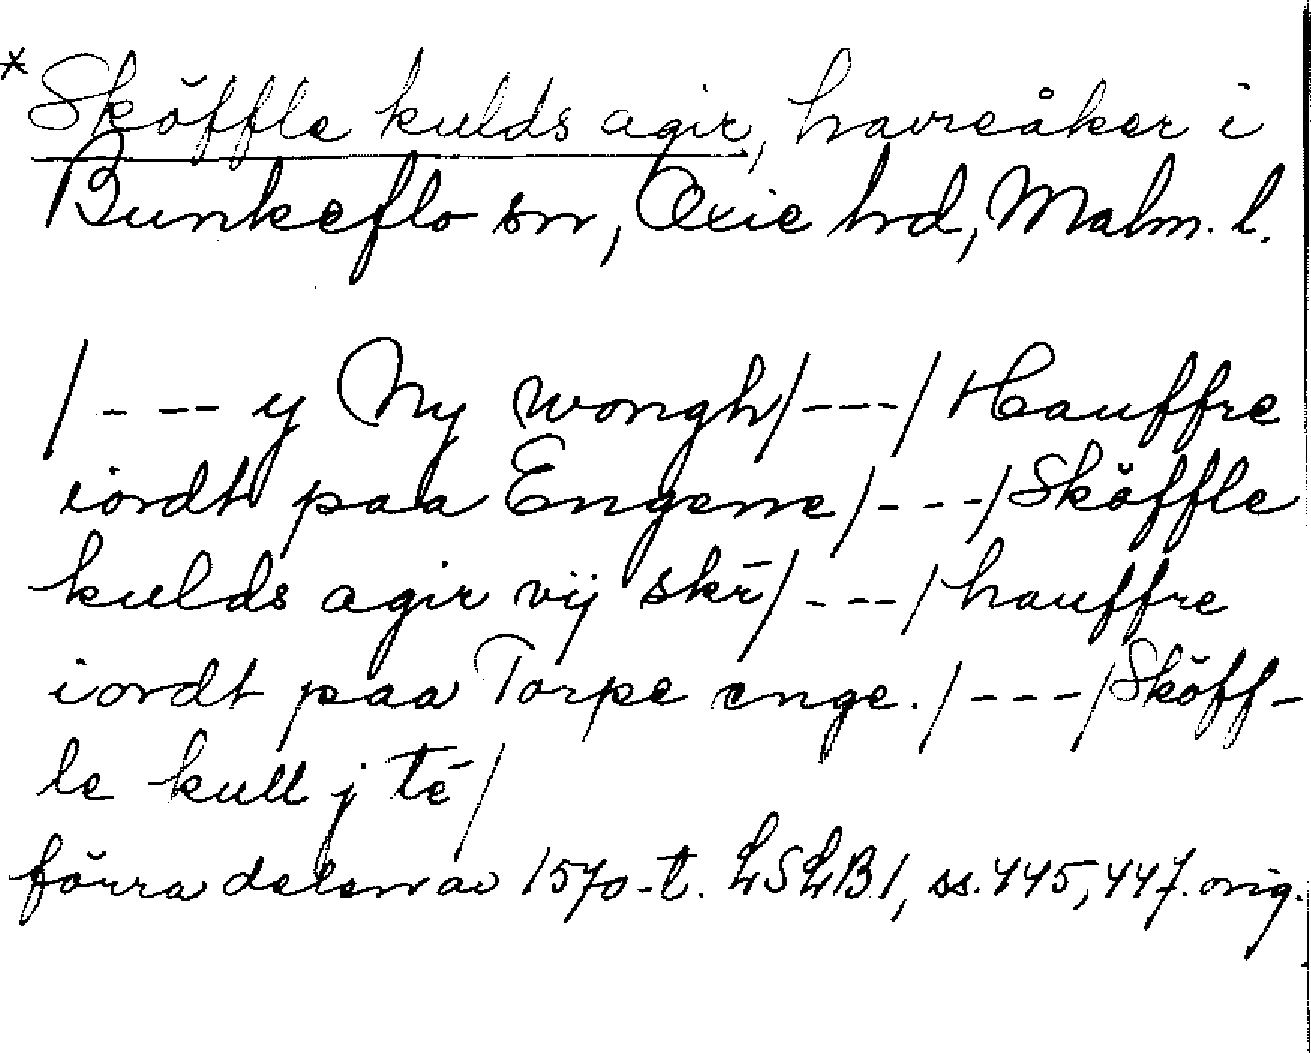 * Sköffle kulds agir, havreåker i
Bunkeflo sn, Oxie hd, Malm. l.
/- -- y Ny wongh/---/ Hauffre
iordt paa Engene/---/Sköffle
kulds agir vij skr̄/---/hauffre
iordt paa Torpe enge./---/Sköff-
le kull j tē/
förra delen av 1570-t. LSLB1, ss. 445, 447. orig.